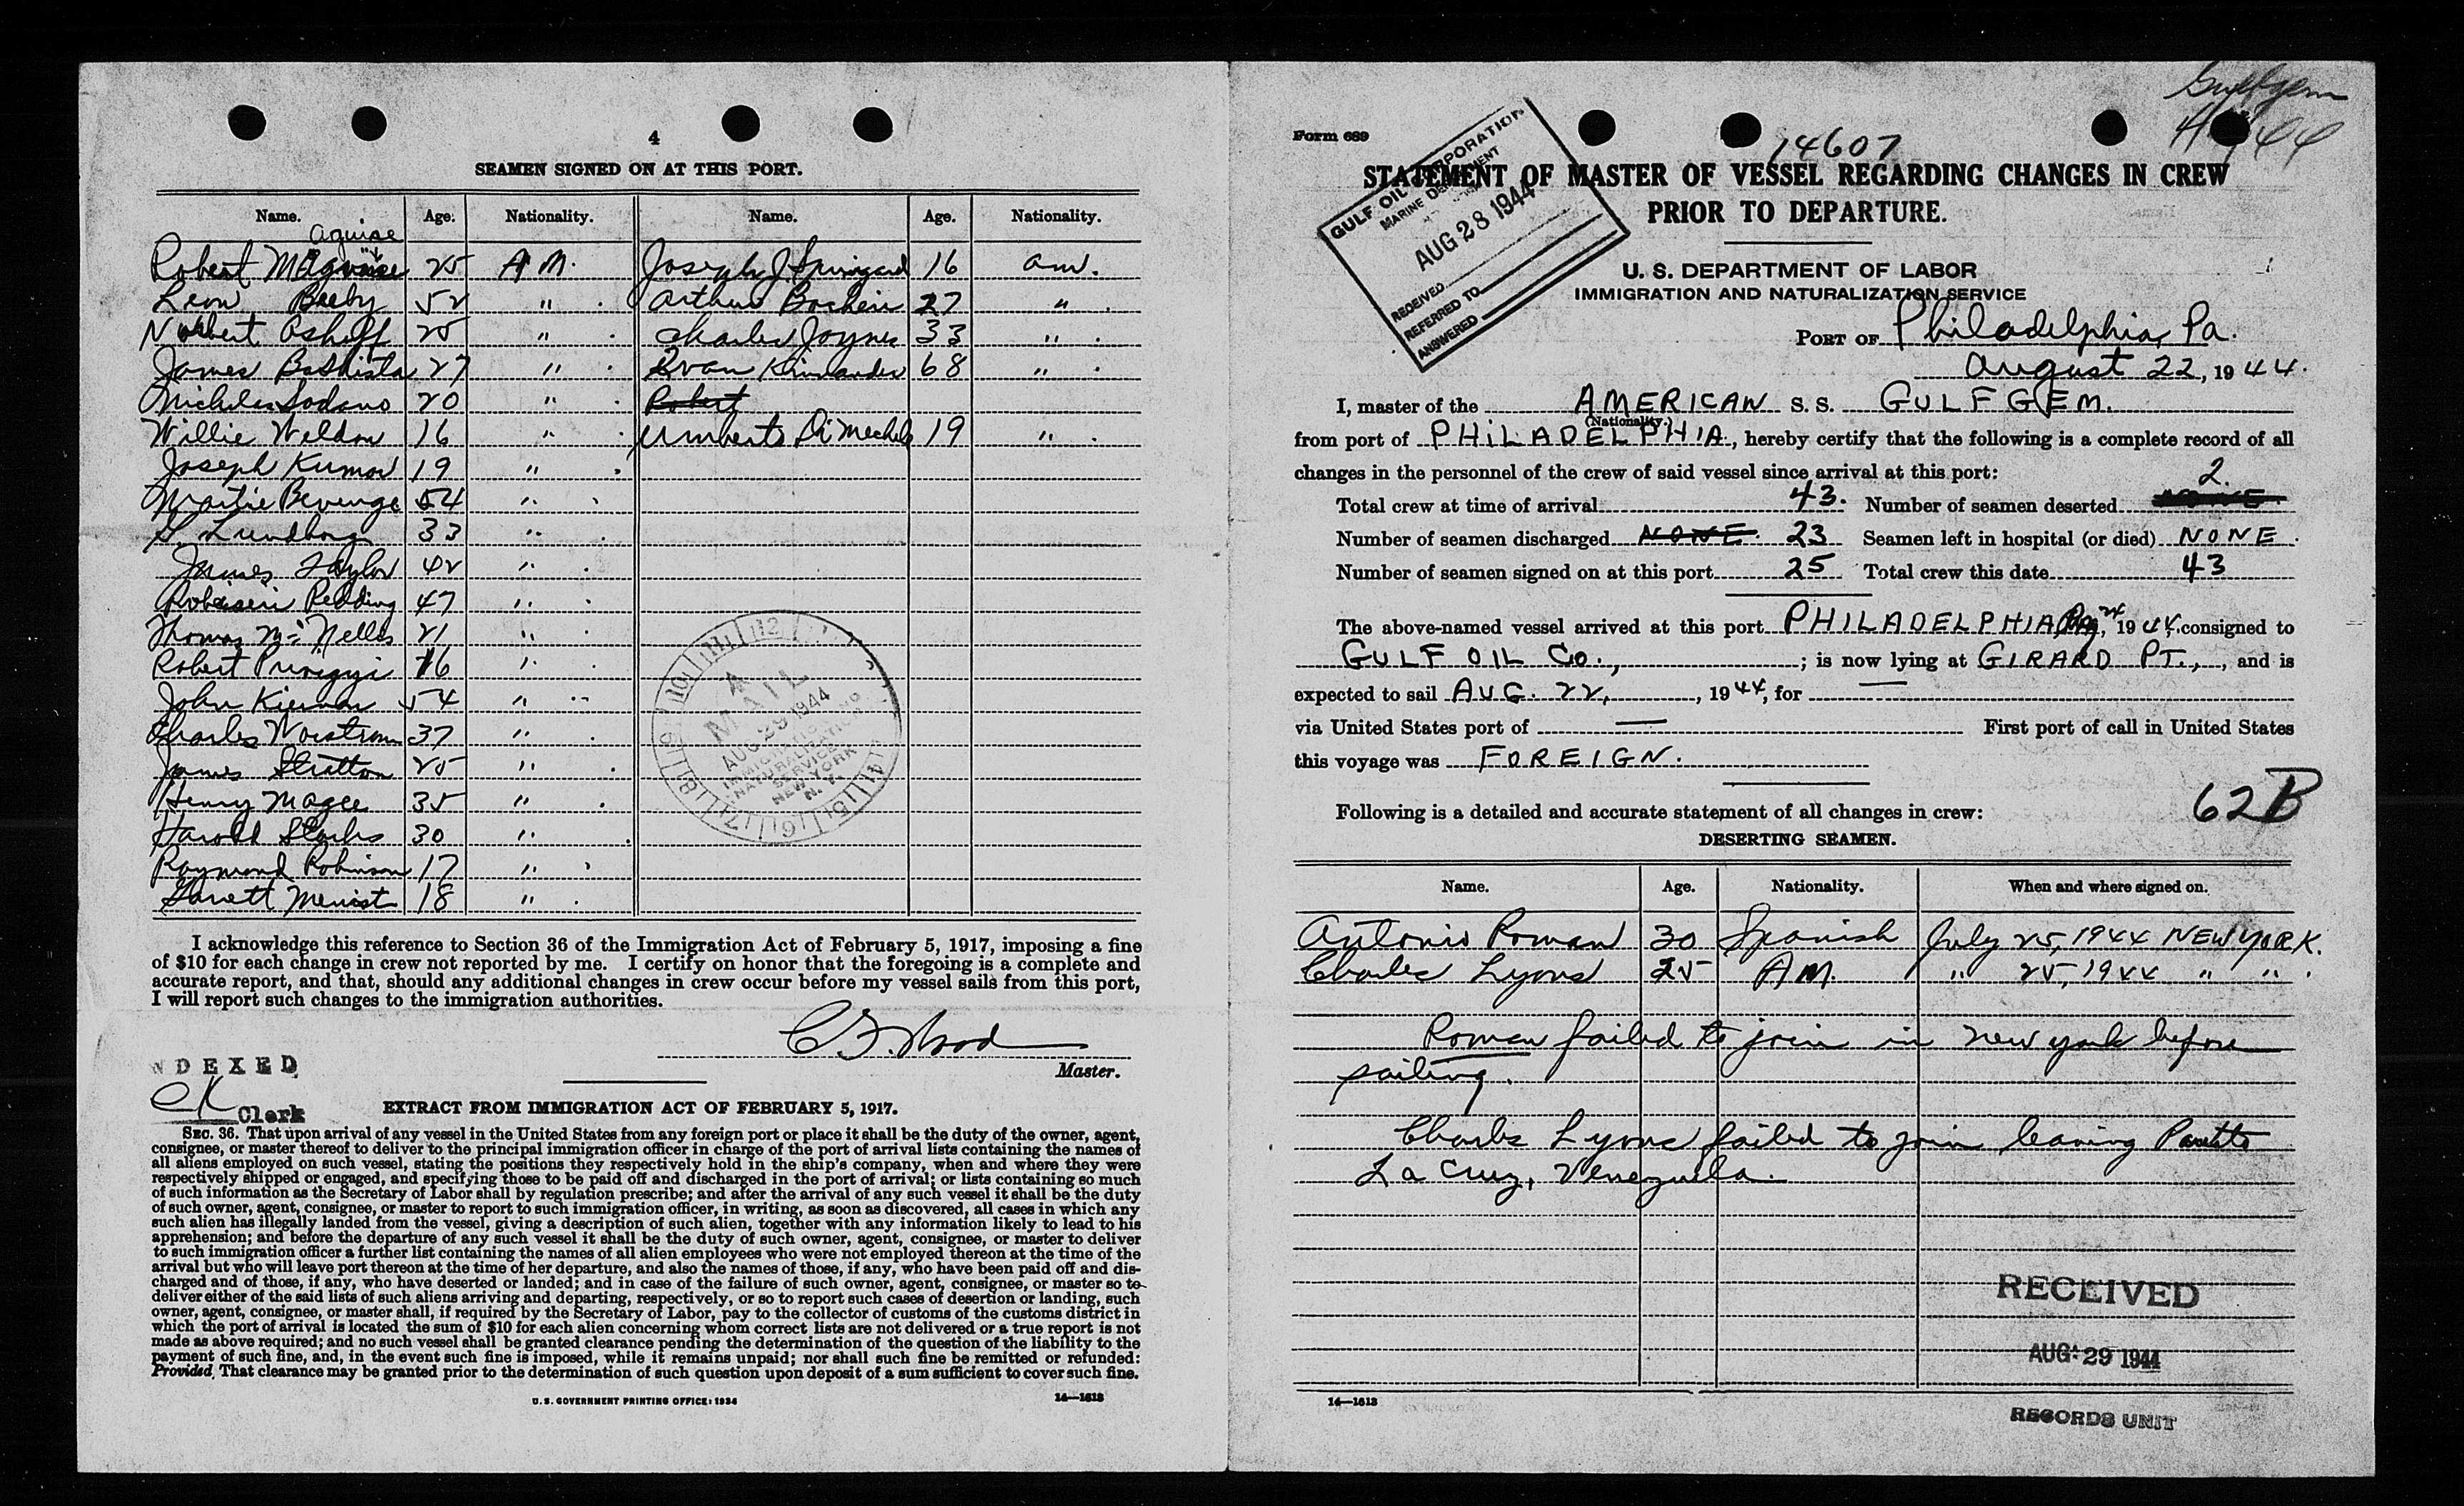 4
SEAMEN SIGNED ON AT THIS PORT.
Name. Age. Nationality. Name. Age. Nationality.
Robert 25 AM. Joseph J 16 am.
Leon Beeby 52 " Arthur 27 "
Norbert 25 " Charles Joynes 33 "
James Bathista 27 " 68 "
Nicholas Sodano 20 " Robert
Willie Weldon 16 " Umberto Di 19 "
Joseph Kumor 19 "
54 "
S. Lundborg 33 "
James Taylor 42 "
Redding 47 "
Thomas Mc Nelles 21 "
Robert 16 "
John Kiernan 54 "
Charles 37 "
James Stratton 25 "
Henry Magee 35 "
Harold 30 "
Raymond Robinson 17 "
18 "
A
MAIL
AUG 29 1944
IMMIGRATION AND
NATURALISATION
SERVICE
NEW YORK
N. Y.
I acknowledge this reference to Section 36 of the Immigration Act of February 5, 1917, imposing a fine
of $10 for each change in crew not reported by me. I certify on honor that the foregoing is a complete and
accurate report, and that, should any additional changes in crew occur before my vessel sails from this port,
I will report such changes to the immigration authorities.
Wood
Master.
NDEXED
CK Clerk
EXTRACT FROM IMMIGRATION ACT OF FEBRUARY 5, 1917.
SEC. 36. That upon arrival of any vessel in the United States from any foreign port or place it shall be the duty of the owner, agent,
consignee, or master thereof to deliver to the principal immigration officer in charge of the port of arrival lists containing the names of
all aliens employed on such vessel, stating the positions they respectively hold in the ship's company, when and where they were
respectively shipped or engaged, and specifying those to be paid off and discharged in the port of arrival; or lists containing so much
of such information as the Secretary of Labor shall by regulation prescribe; and after the arrival of any such vessel it shall be the duty
of such owner, agent, consignee, or master to report to such immigration officer, in writing, as soon as discovered, all cases in which any
such alien has illegally landed from the vessel, giving a description of such alien, together with any information likely to lead to his
apprehension; and before the departure of any such vessel it shall be the duty of such owner, agent, consignee, or master to deliver
to such immigration officer a further list containing the names of all alien employees who were not employed thereon at the time of the
arrival but who will leave port thereon at the time of her departure, and also the names of those, if any, who have been paid off and dis-
charged and of those, if any, who have deserted or landed; and in case of the failure of such owner, agent, consignee, or master so to
deliver either of the said lists of such aliens arriving and departing, respectively, or so to report such cases of desertion or landing, such
owner, agent, consignee, or master shall, if required by the Secretary of Labor, pay to the collector of customs of the customs district in
which the port of arrival is located the sum of $10 for each alien concerning whom correct lists are not delivered or a true report is not
made as above required; and no such vessel shall be granted clearance pending the determination of the question of the liability to the
payment of such fine, and, in the event such fine is imposed, while it remains unpaid; nor shall such fine be remitted or refunded:
Provided, That clearance may be granted prior to the determination of such question upon deposit of a sum sufficient to cover such fine.
U. S. GOVERNMENT PRINTING OFFICE: 1934 14—1613
Gulfgem
Form 689
14607
GULF OIL CORPORATION
MARINE DEPARTMENT
AUG 28 1944
RECEIVED
REFERRED TO
ANSWERED
STATEMENT OF MASTER OF VESSEL REGARDING CHANGES IN CREW
PRIOR TO DEPARTURE.
U. S. DEPARTMENT OF LABOR
IMMIGRATION AND NATURALIZATION SERVICE
PORT OF Philadelphia, Pa.
August 22, 1944.
I, master of the AMERICAN S. S. GULFGEM.
(Nationality.)
from port of PHILADELPHIA, hereby certify that the following is a complete record of all
changes in the personnel of the crew of said vessel since arrival at this port:
Total crew at time of arrival 43. Number of seamen deserted NONE. 2.
Number of seamen discharged NONE. 23 Seamen left in hospital (or died) NONE.
Number of seamen signed on at this port 25 Total crew this date 43
The above-named vessel arrived at this port PHILADELPHIA, 1944, consigned to
GULF OIL CO., ; is now lying at GIRARD PT., , and is
expected to sail AUG. 22, , 1944, for —
via United States port of — First port of call in United States
this voyage was FOREIGN.
62B
Following is a detailed and accurate statement of all changes in crew:
DESERTING SEAMEN.
Name. Age. Nationality. When and where signed on.
Antonio Roman 30 Spanish July 25, 1944 NEW YORK.
Charles Lyons 25 AM. " 25, 1944 " "
Roman failed to join in new york before
sailing.
Charles Lyons failed to join leaving
La Cruz, Venezuela.
RECEIVED
AUG 29 1944
RECORDS UNIT
14—1613